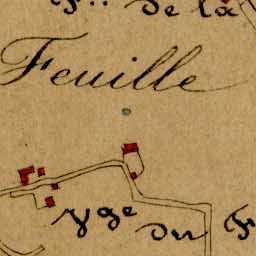 de la
Feuille
vge
du F